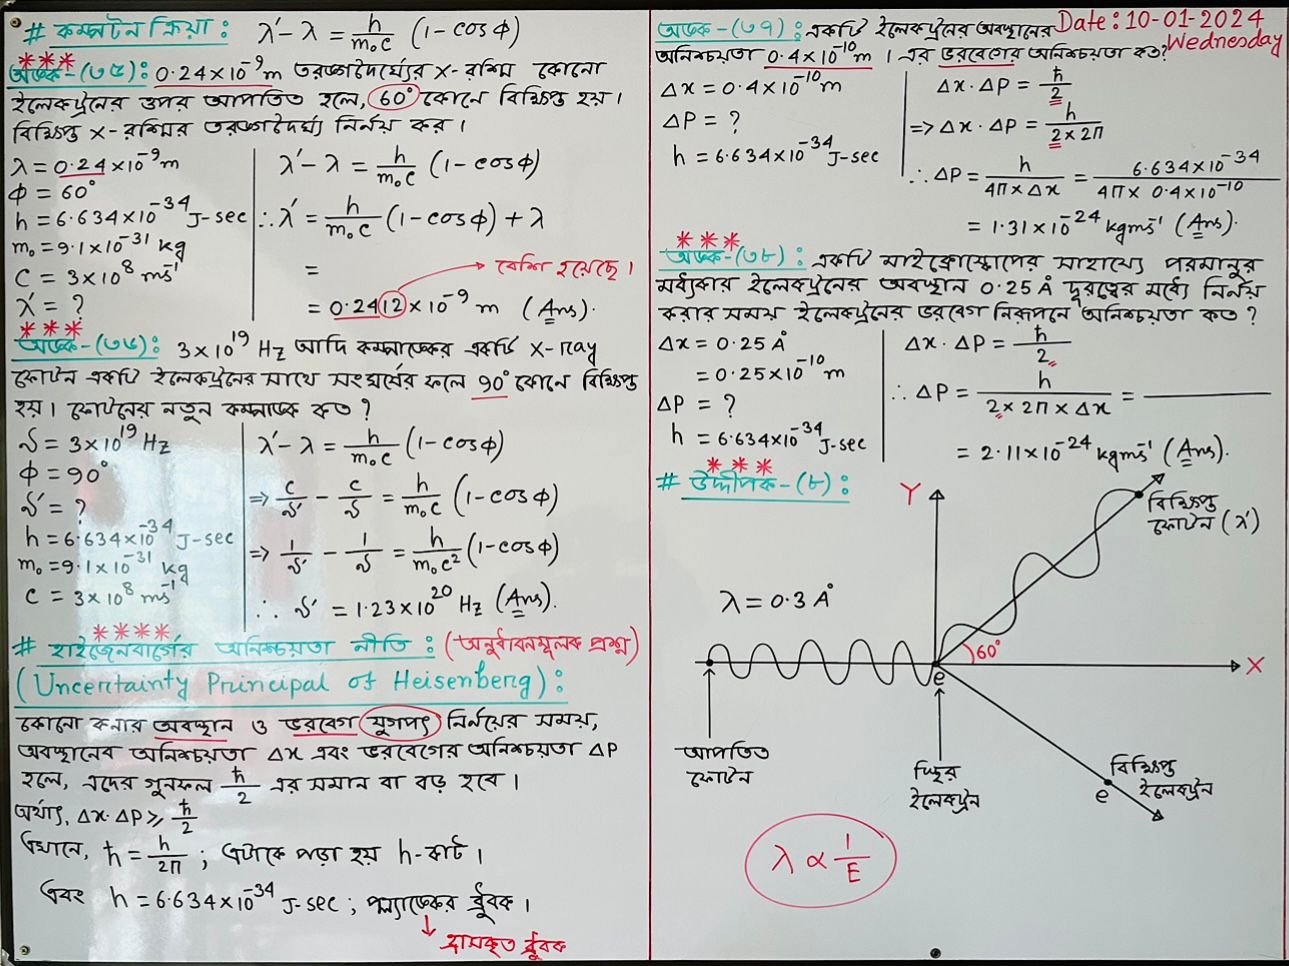 # কম্পটন ক্রিয়া : λ′ - λ = h/m₀c (1 - cosϕ)
***
অঙ্ক-(৩৫) : 0.24×10⁻⁹m তরঙ্গদৈর্ঘ্যের X-রশ্মি কোনো
ইলেকট্রনের ওপর আপতিত হলে, 60° কোনে বিক্ষিপ্ত হয়।
বিক্ষিপ্ত X-রশ্মির তরঙ্গদৈর্ঘ্য নির্নয় কর।
λ = 0.24×10⁻⁹m
ϕ = 60°
h = 6.634×10⁻³⁴ J-sec
m₀ = 9.1×10⁻³¹ kg
C = 3×10⁸ ms⁻¹
λ′ = ?
λ′ - λ = h/m₀c (1 - cosϕ)
∴ λ′ = h/m₀c (1 - cosϕ) + λ
=
→ বেশি হয়েছে।
= 0.2412×10⁻⁹ m (Ans).
***
অঙ্ক-(৩৬) : 3×10¹⁹ Hz আদি কম্পাঙ্কের একটি X-ray
ফোটন একটি ইলেকট্রনের সাথে সংঘর্ষের ফলে 90° কোনে বিক্ষিপ্ত
হয়। ফোটনের নতুন কম্পাঙ্ক কত?
ν = 3×10¹⁹ Hz
ϕ = 90°
ν′ = ?
h = 6.634×10⁻³⁴ J-sec
m₀ = 9.1×10⁻³¹ kg
c = 3×10⁸ ms⁻¹
λ′ - λ = h/m₀c (1 - cosϕ)
⇒ c/ν′ - c/ν = h/m₀c (1 - cosϕ)
⇒ 1/ν′ - 1/ν = h/m₀c² (1 - cosϕ)
∴ ν′ = 1.23×10²⁰ Hz (Ans).
****
# হাইজেনবার্গের অনিশ্চয়তা নীতি : (অনুধাবনমূলক প্রশ্ন)
(Uncertainty Principal of Heisenberg) :
কোনো কনার অবস্থান ও ভরবেগ যুগপৎ নির্নয়ের সময়,
অবস্থানের অনিশ্চয়তা Δx এবং ভরবেগের অনিশ্চয়তা ΔP
হলে, এদের গুনফল ħ/2 এর সমান বা বড় হবে।
অর্থাৎ, Δx·ΔP ≥ ħ/2
এখানে, ħ = h/2π ; এটাকে পড়া হয় h-কাট।
এবং h = 6.634×10⁻³⁴ J-sec ; প্ল্যাঙ্কের ধ্রুবক।
↓
হ্রাসকৃত ধ্রুবক
Date : 10-01-2024
Wednesday
অঙ্ক-(৩৭) : একটি ইলেকট্রনের অবস্থানের
অনিশ্চয়তা 0.4×10⁻¹⁰m । এর ভরবেগের অনিশ্চয়তা কত?
Δx = 0.4×10⁻¹⁰m
ΔP = ?
h = 6.634×10⁻³⁴ J-sec
Δx·ΔP = ħ/2
⇒ Δx·ΔP = h/2×2π
∴ ΔP = h/4π×Δx = 6.634×10⁻³⁴/4π×0.4×10⁻¹⁰
= 1.31×10⁻²⁴ kgms⁻¹ (Ans).
***
অঙ্ক-(৩৮) : একটি মাইক্রোস্কোপের সাহায্যে পরমানুর
মধ্যকার ইলেকট্রনের অবস্থান 0.25 Å দূরত্বের মধ্যে নির্নয়
করার সময় ইলেকট্রনের ভরবেগ নিরূপনে অনিশ্চয়তা কত?
Δx = 0.25 Å
= 0.25×10⁻¹⁰ m
ΔP = ?
h = 6.634×10⁻³⁴ J-sec
Δx·ΔP = ħ/2
∴ ΔP = h/2×2π×Δx = ———
= 2.11×10⁻²⁴ kgms⁻¹ (Ans).
***
# উদ্দীপক-(৮) :
Y
বিক্ষিপ্ত
ফোটন (λ′)
λ = 0.3 Å
60°
X
e
আপতিত
ফোটন
স্থির
ইলেকট্রন
বিক্ষিপ্ত
ইলেকট্রন
e
λ ∝ 1/E